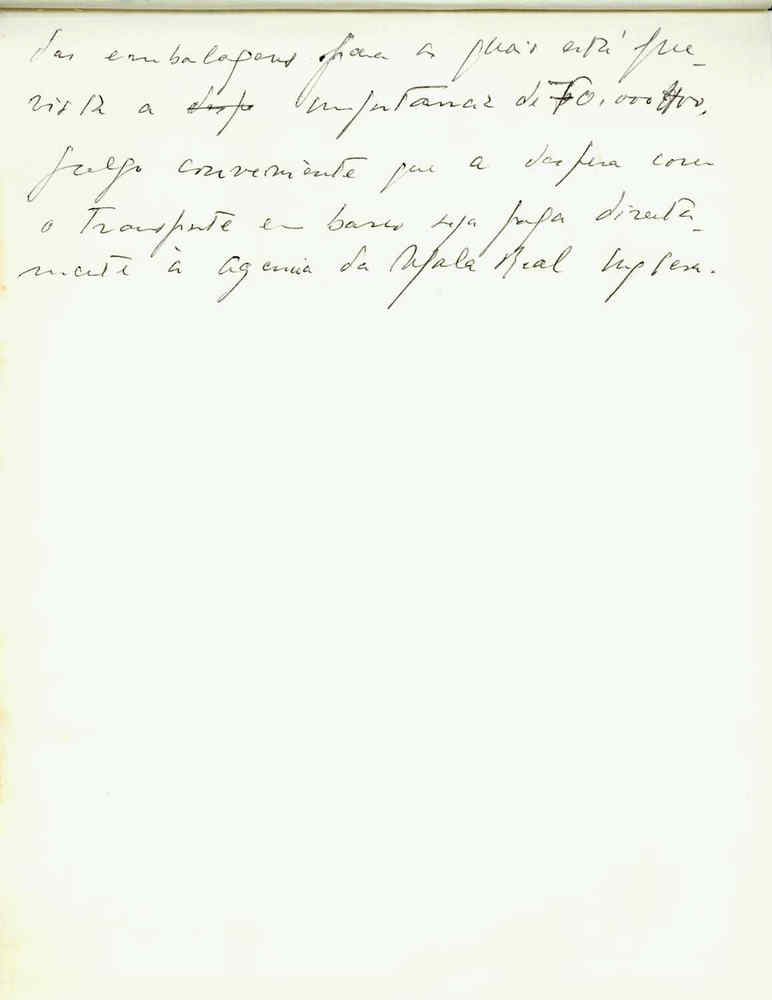 das embalagens para as quais está pre-
vista a desp importancia de 50.000$00,
julgo conveniente que a despesa com
o transporte em barco seja paga directa-
mente à agencia da Mala Real Inglesa.